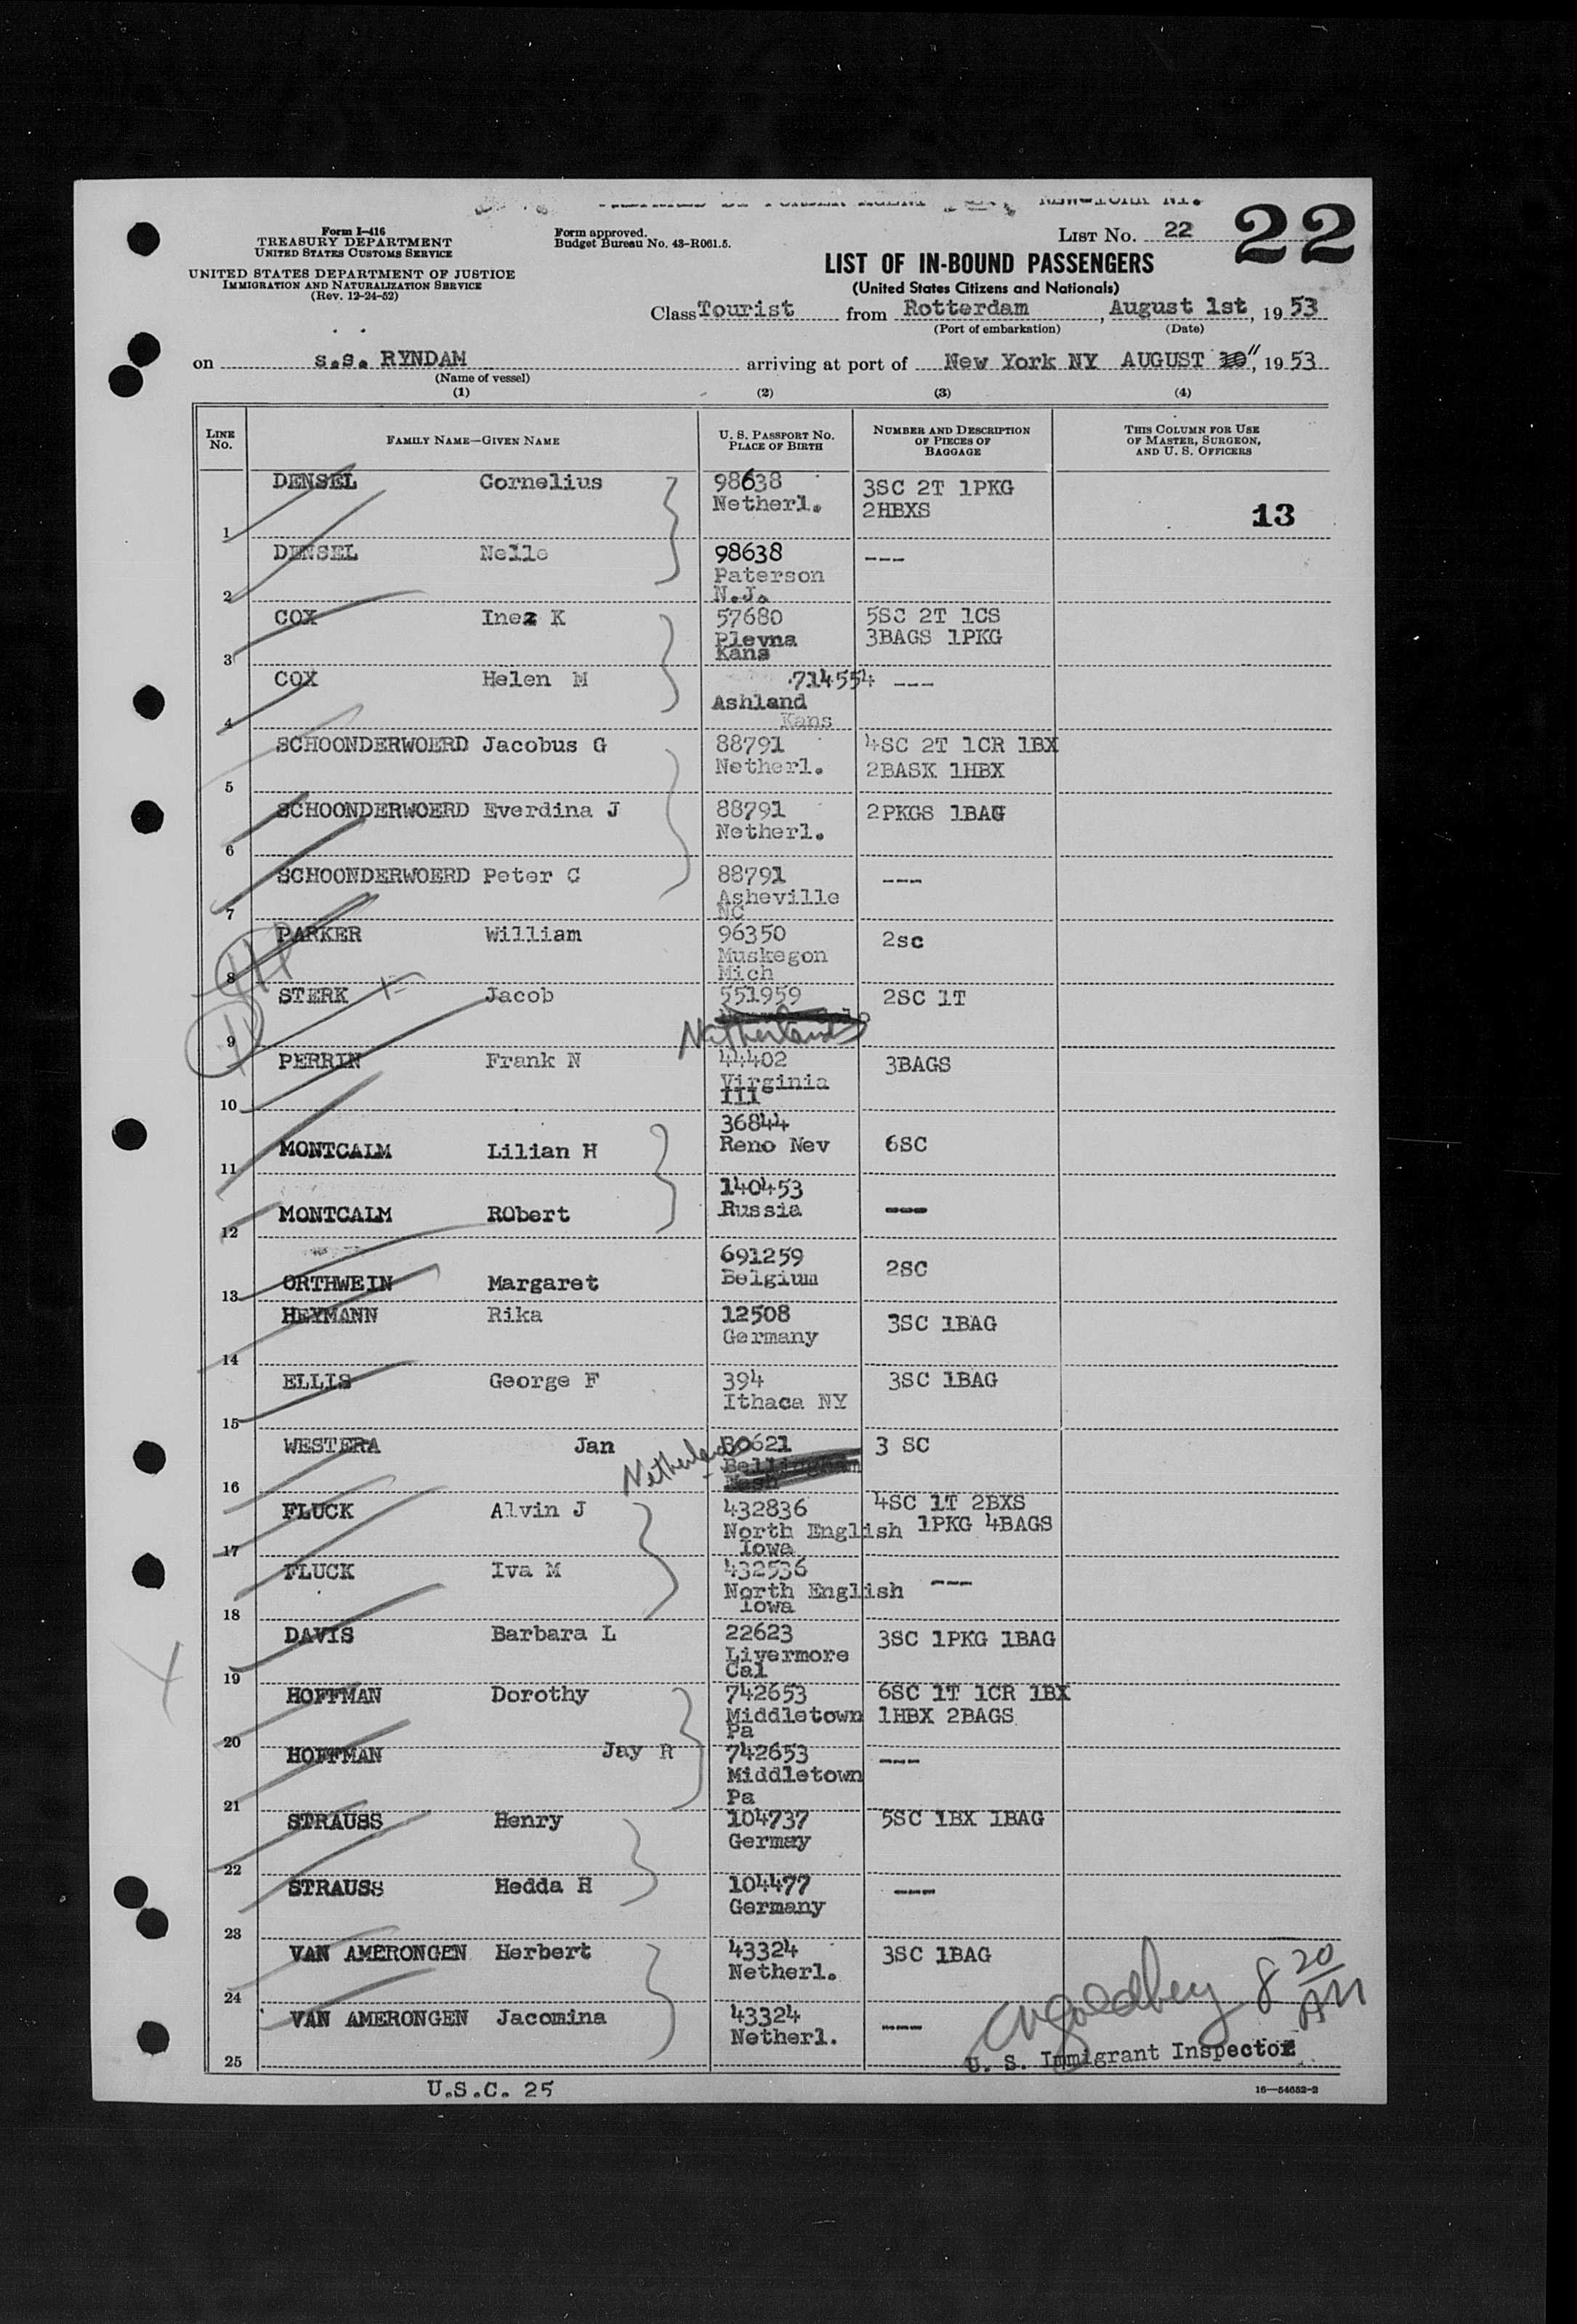 Form I-416
TREASURY DEPARTMENT
UNITED STATES CUSTOMS SERVICE
UNITED STATES DEPARTMENT OF JUSTICE
IMMIGRATION AND NATURALIZATION SERVICE
(Rev. 12-24-52)
Form approved.
Budget Bureau No. 43-R061.5.
LIST NO. 22
22
LIST OF IN-BOUND PASSENGERS
(United States Citizens and Nationals)
Class Tourist from Rotterdam, August 1st, 1953
(Port of embarkation) (Date)
on s.s. RYNDAM arriving at port of New York NY AUGUST 11, 1953
(Name of vessel)
(1) (2) (3) (4)
LINE NO. FAMILY NAME—GIVEN NAME U. S. PASSPORT NO. PLACE OF BIRTH NUMBER AND DESCRIPTION OF PIECES OF BAGGAGE THIS COLUMN FOR USE OF MASTER, SURGEON, AND U. S. OFFICERS
DENSEL Cornelius 98638 3SC 2T 1PKG
Netherl. 2HBXS
1 13
DENSEL Nelle 98638 ---
Paterson
2 N.J.
COX Inez K 57680 5SC 2T 1CS
Plevna 3BAGS 1PKG
3 Kans
COX Helen M 714554 ---
Ashland
4 Kans
SCHOONDERWOERD Jacobus G 88791 4SC 2T 1CR 1BX
Netherl. 2BASK 1HBX
5
SCHOONDERWOERD Everdina J 88791 2PKGS 1BAG
Netherl.
6
SCHOONDERWOERD Peter C 88791 ---
Asheville
7 NC
PARKER William 96350 2sc
Muskegon
8 Mich
STERK Jacob 551959 2SC 1T
9 Netherlands
PERRIN Frank N 44402 3BAGS
Virginia
10 Ill
36844
MONTCALM Lilian H Reno Nev 6SC
11
140453
MONTCALM RObert Russia ---
12
691259
ORTHWEIN Margaret Belgium 2SC
13
HEYMANN Rika 12508 3SC 1BAG
Germany
14
ELLIS George F 394 3SC 1BAG
Ithaca NY
15
WESTERA Jan 80621 3 SC
Netherlands Bellingham
16 Wash
FLUCK Alvin J 432836 4SC 1T 2BXS
North English 1PKG 4BAGS
17 Iowa
FLUCK Iva M 432536 ---
North English
18 Iowa
DAVIS Barbara L 22623 3SC 1PKG 1BAG
Livermore
19 Cal
HOFFMAN Dorothy 742653 6SC 1T 1CR 1BX
Middletown 1HBX 2BAGS
20 Pa
HOFFMAN Jay R 742653 ---
Middletown
21 Pa
STRAUSS Henry 104737 5SC 1BX 1BAG
Germay
22
STRAUSS Hedda H 104477 ---
Germany
23
VAN AMERONGEN Herbert 43324 3SC 1BAG
Netherl.
24
VAN AMERONGEN Jacomina 43324 ---
Netherl.
25
8 20 AM
U. S. Immigrant Inspector
U.S.C. 25
16—54652-2